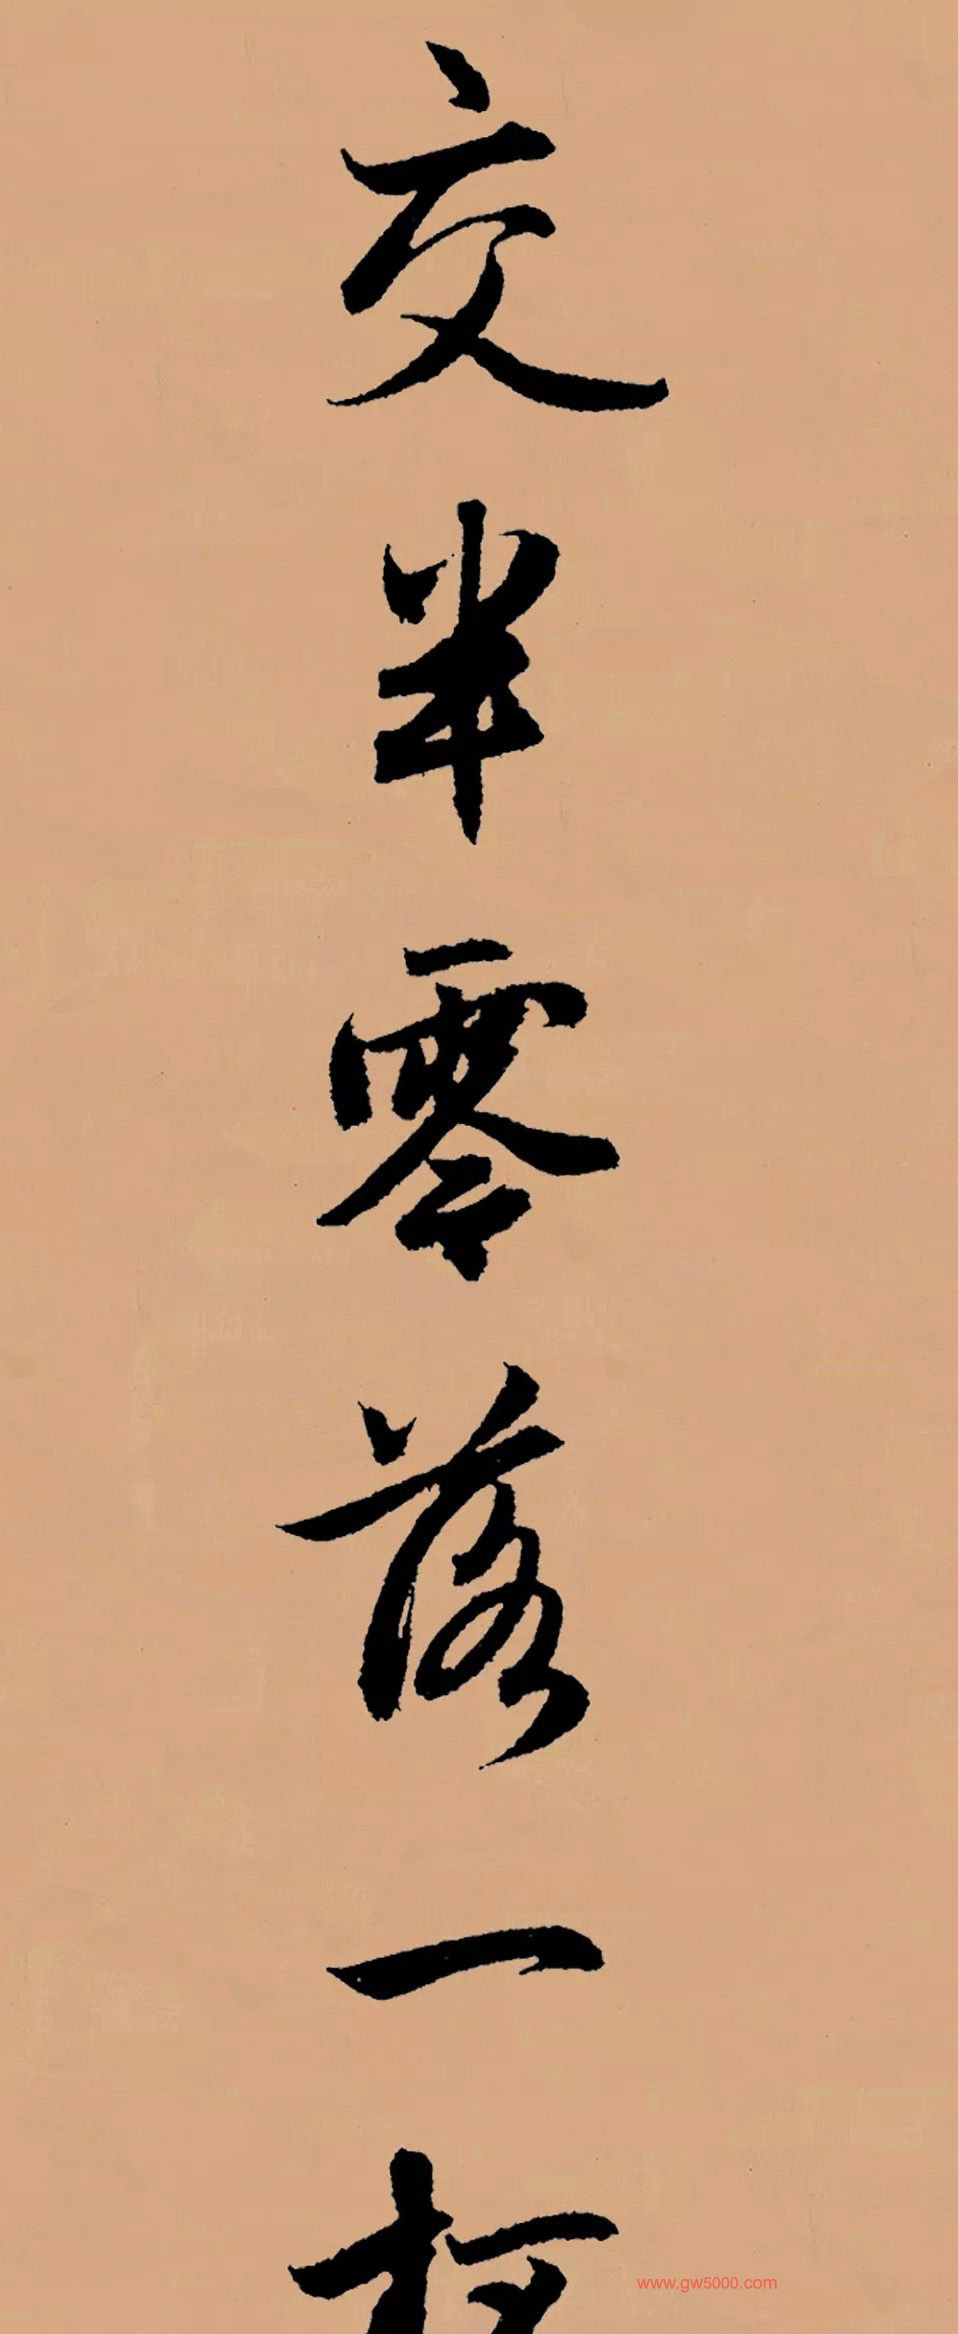 交半零落一
www.gw5000.com